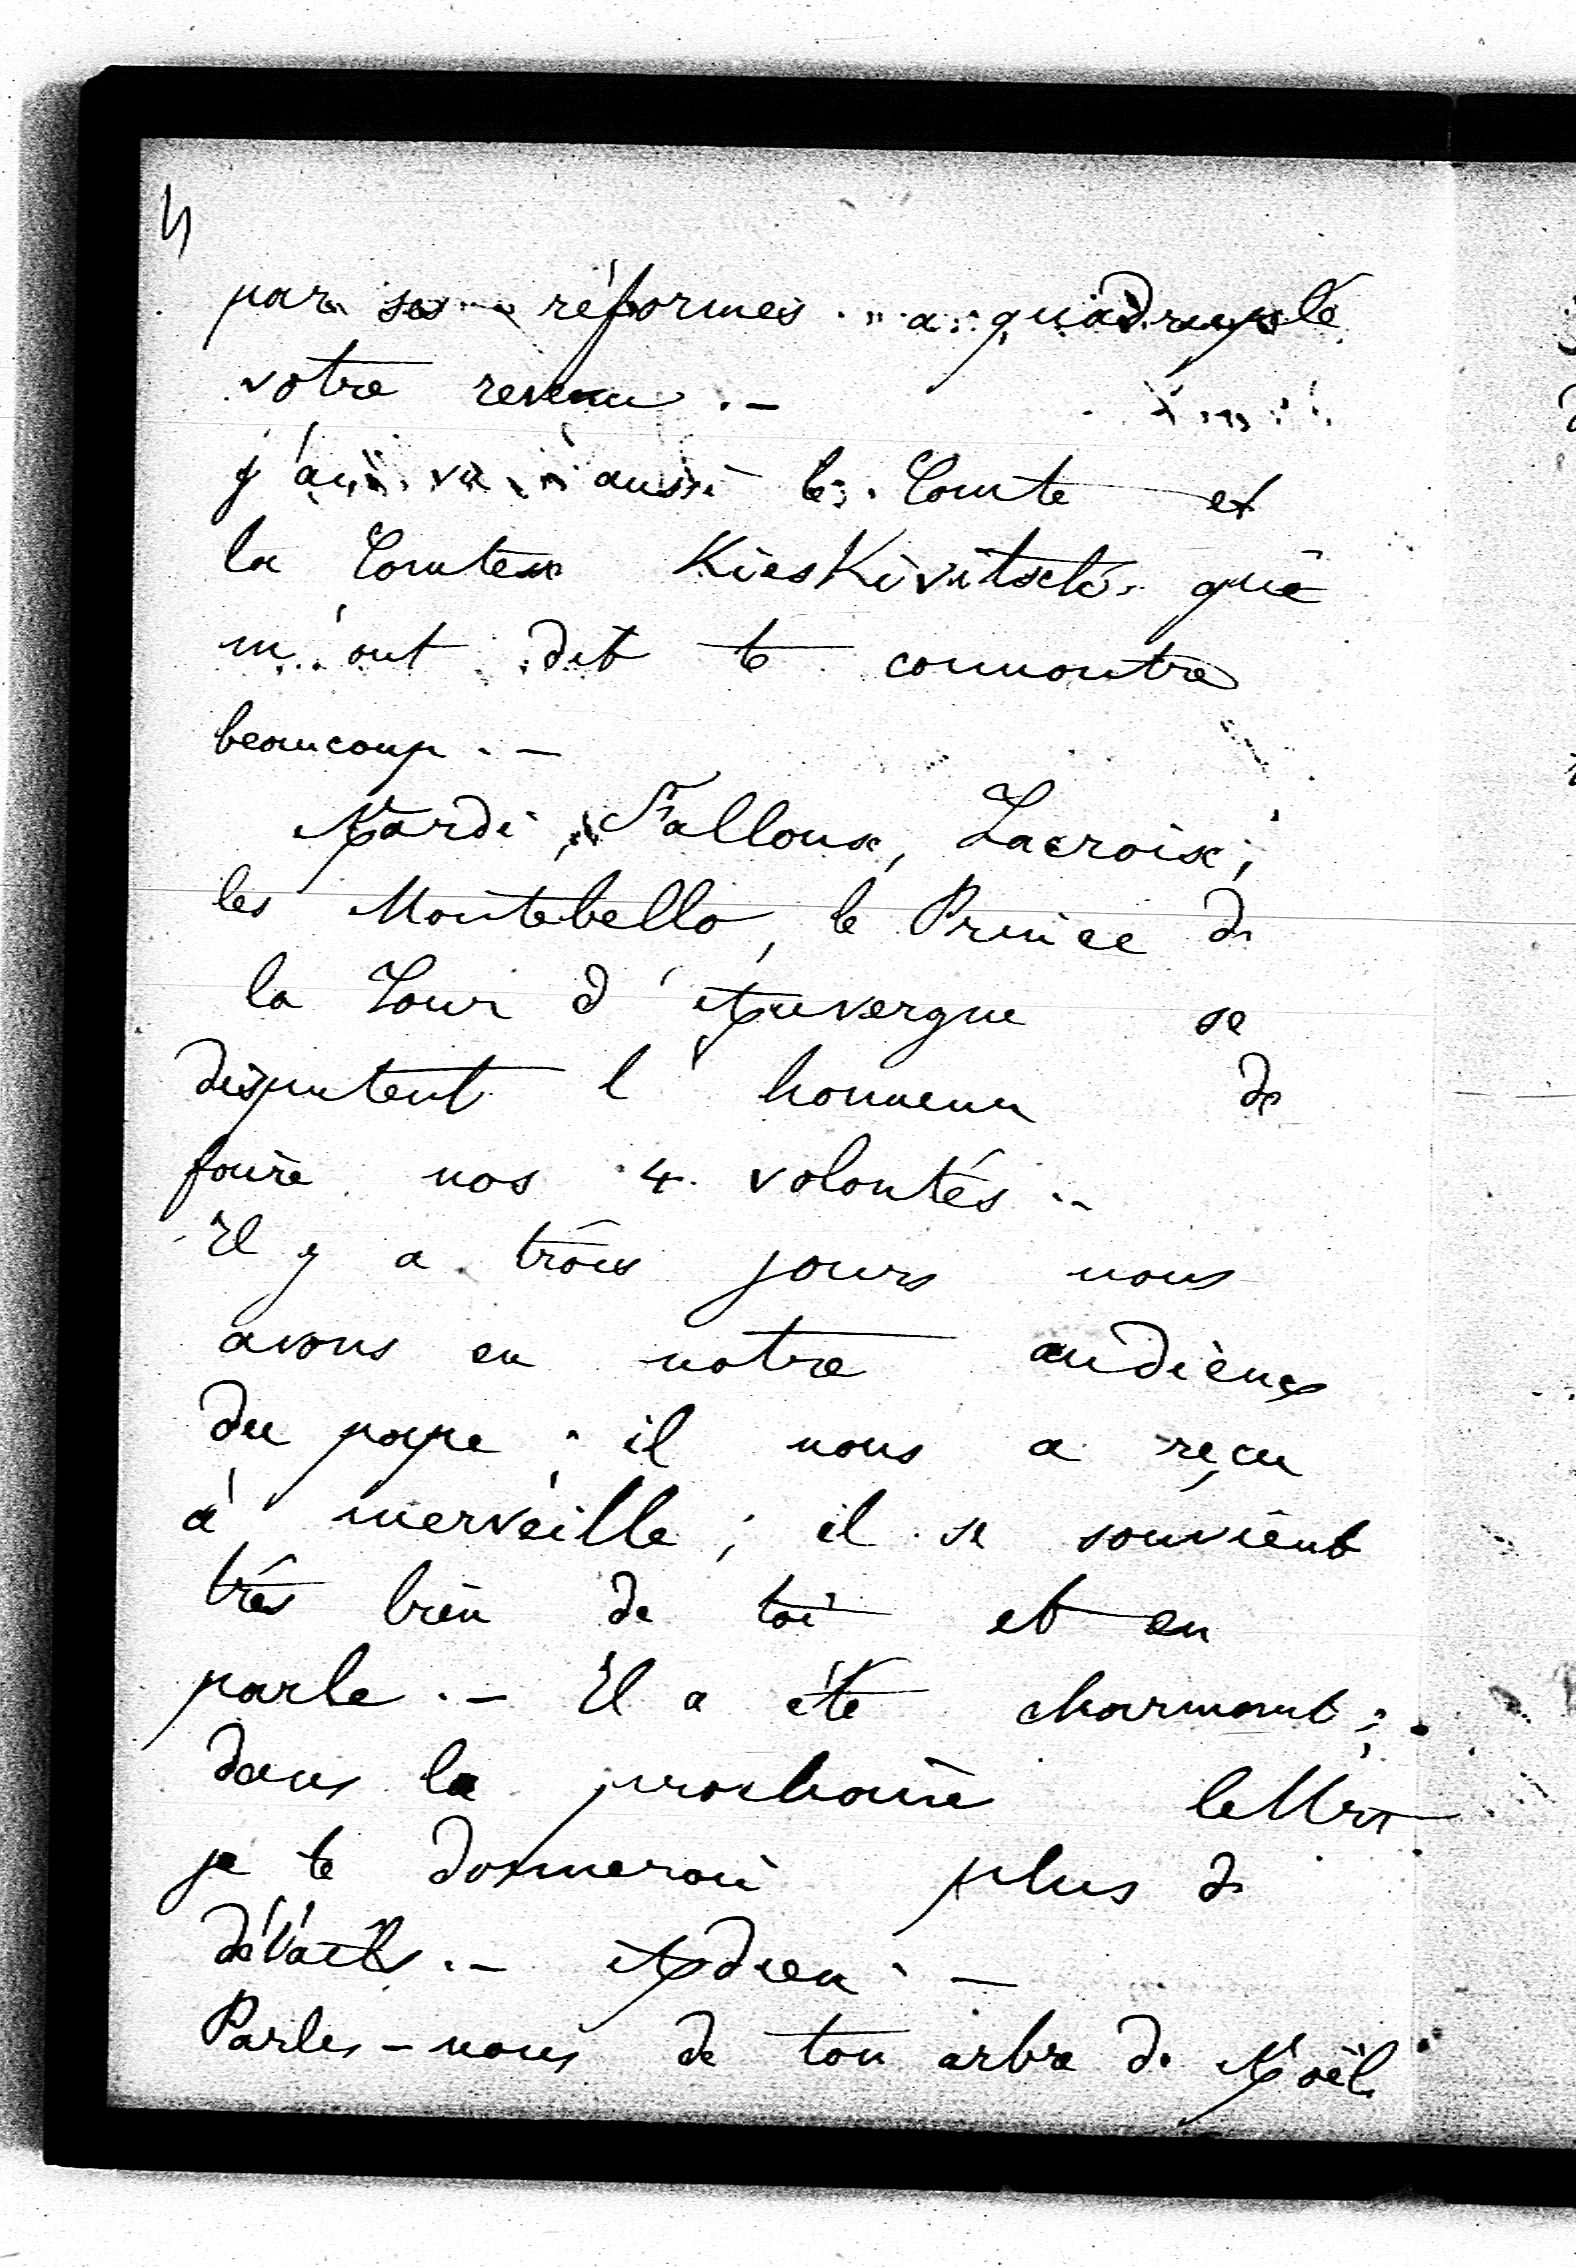 par ses réformes a quadruplé
votre revenu. —
j'ai vu aussi le Comte et
la Comtesse Kieskivitsch qui
m'ont dit te connaître
beaucoup. —
Nardi, Falloux, Lacroix,
les Montebello, le Prince de
la Tour d'Auvergne se
disputent l'honneur de
faire nos 4 volontés. —
Il y a trois jours nous
avons eu notre audience
du pape ; il nous a reçu
à merveille ; il se souvient
très bien de toi et en
parle. — Il a été charmant ;
dans la prochaine lettre
je te donnerai plus de
détails. — Adieu. —
Parles-nous de ton arbre de Noël